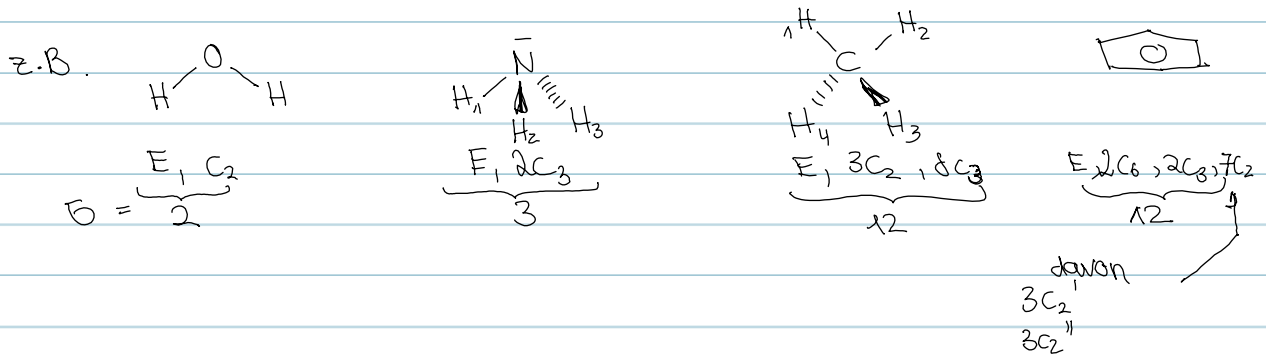 z.B. H O H H₁ N̄ H₂ H₃ ₁H H₂ C H₄ H₃
E, C₂ E, 2C₃ E, 3C₂, 8C₃ E, 2C₆, 2C₃, 7C₂
σ = 2 3 12 12
davon
3C₂'
3C₂''